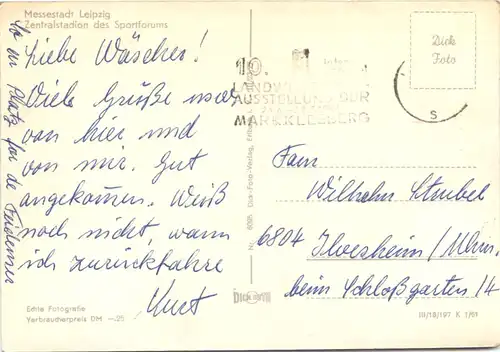 Messestadt Leipzig
Zentralstadion des Sportforums
Liebe Wäscher!
Viele Grüße
von hier und
von mir. Gut
angekommen. Weiß
noch nicht, wann
ich zurückfahre
Kurt
Echte Fotografie
Verbraucherpreis DM -.25
10.
AUSSTELLUNG DER
MARKKLEEBERG
Dick
Foto
S
Fam
Wilhelm Strubel
6804 Ilvesheim/Mhm.
beim Schloßgarten 14
III/18/197 K 1/61